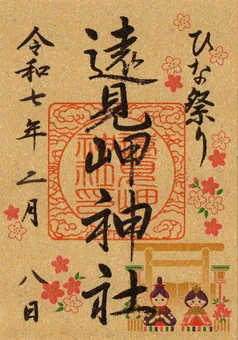 ひな祭り
遠見岬神社
令和七年二月八日